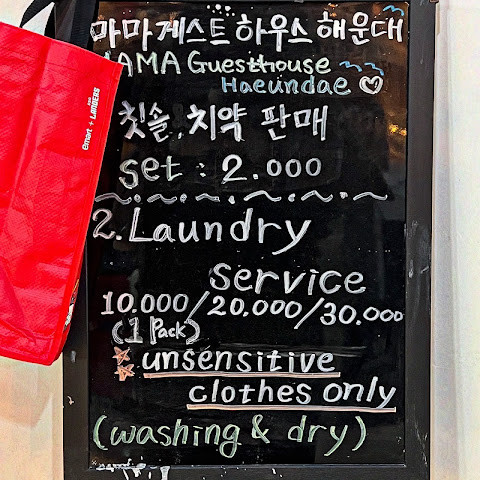 마마게스트하우스 해운대
MAMA Guesthouse
Haeundae
칫솔, 치약 판매
set : 2.000
2. Laundry
Service
10.000/20.000/30.000
(1 Pack)
unsensitive
clothes only
(washing & dry)
emart + LANDERS